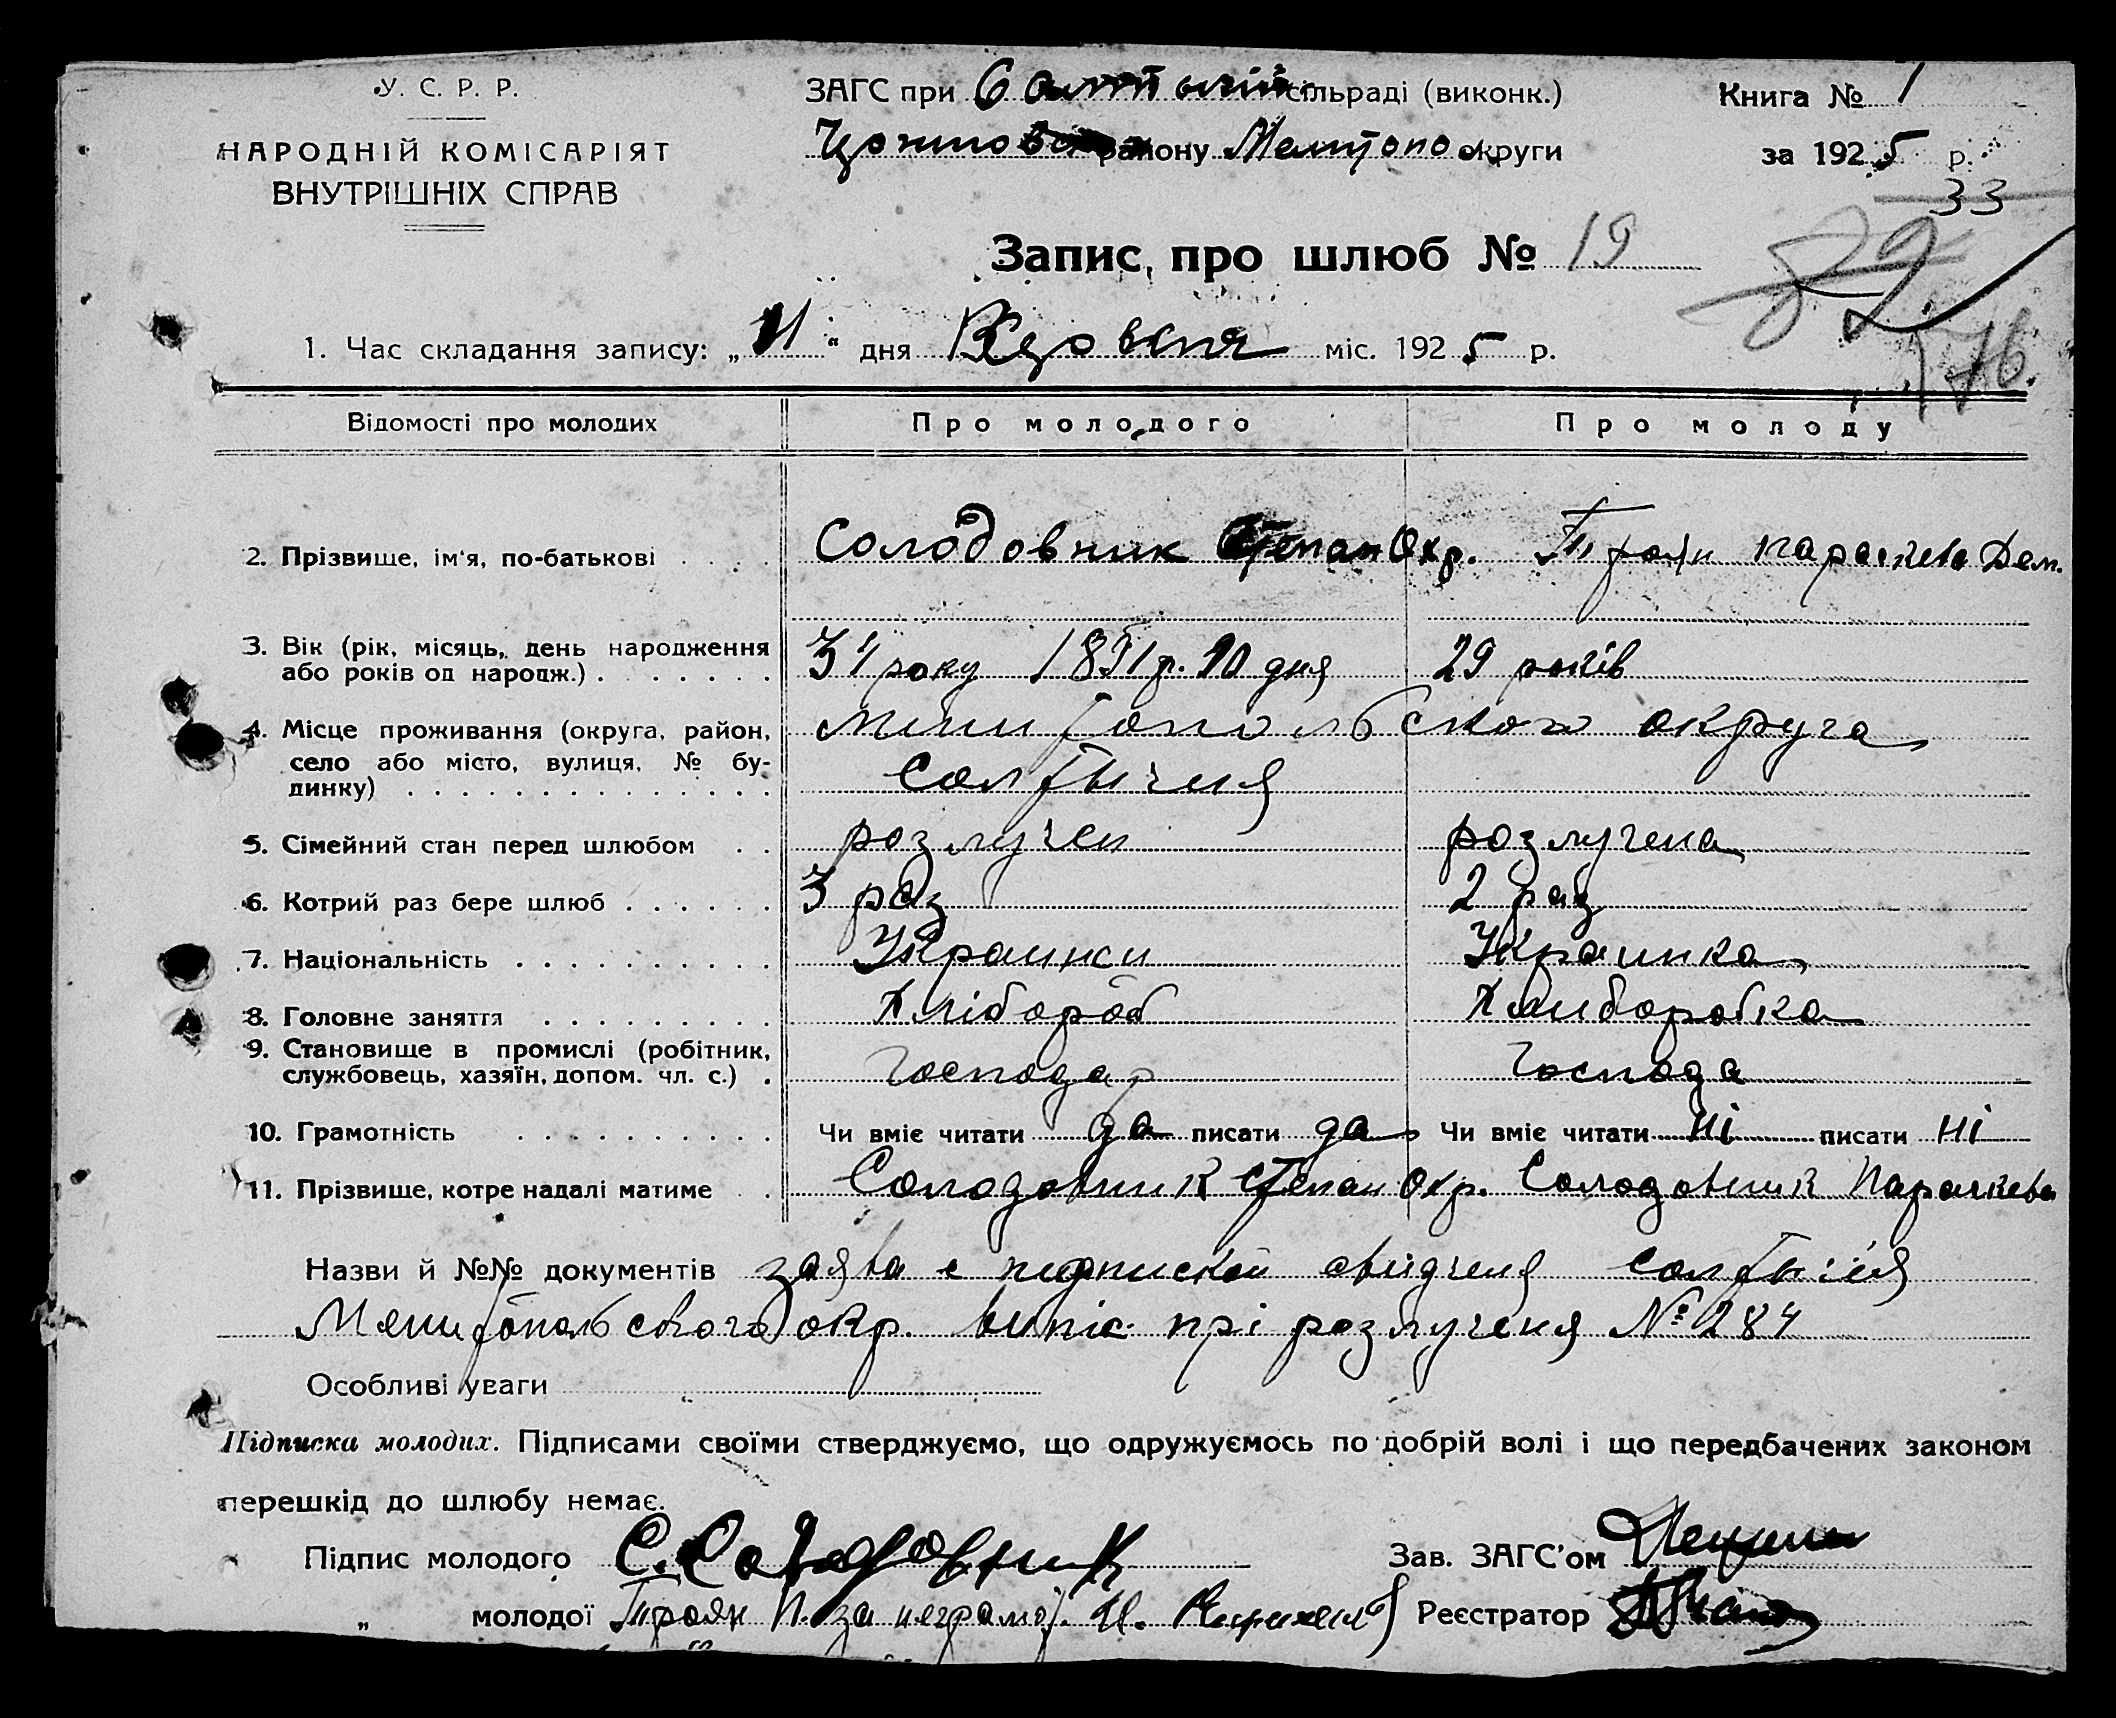 У. С. Р. Р.
НАРОДНІЙ КОМІСАРІЯТ
ВНУТРІШНІХ СПРАВ
ЗАГС при сільраді (виконк.)
району Мелитопо округи
Книга № 1
за 1925 р.
33
Запис про шлюб № 19
76.
1. Час складання запису: „ “ дня міс. 1925 р.
Відомості про молодих Про молодого Про молоду
2. Прізвище, ім'я, по-батькові Солодовник Степан Охр. Троян параскева Дем.
3. Вік (рік, місяць, день народження
або років од народж.) 31 року р. 10 дня 29 років
4. Місце проживання (округа, район, Мелитопольского округа
село або місто, вулиця, № бу-
динку) Солтычия
5. Сімейний стан перед шлюбом розлучен розлучена
6. Котрий раз бере шлюб 3 раз 2 раз
7. Національність Украинка
8. Головне заняття Хлібороб Хлиборобка
9. Становище в промислі (робітник,
службовець, хазяїн, допом. чл. с.) Господар Господа
10. Грамотність Чи вміє читати да писати да Чи вміє читати ні писати ні
11. Прізвище, котре надалі матиме Солодовник Степан Охр. Солодовник Параскева
Назви й №№ документів заява с подпиской свидченя
Мелитопольского окр. випіс прі розлученя № 284
Особливі уваги
Підписка молодих. Підписами своїми стверджуємо, що одружуємось по добрій волі і що передбачених законом
перешкід до шлюбу немає.
Підпис молодого С. Солодовник Зав. ЗАГС'ом
„ молодої Троян П. за неграмот. Реєстратор